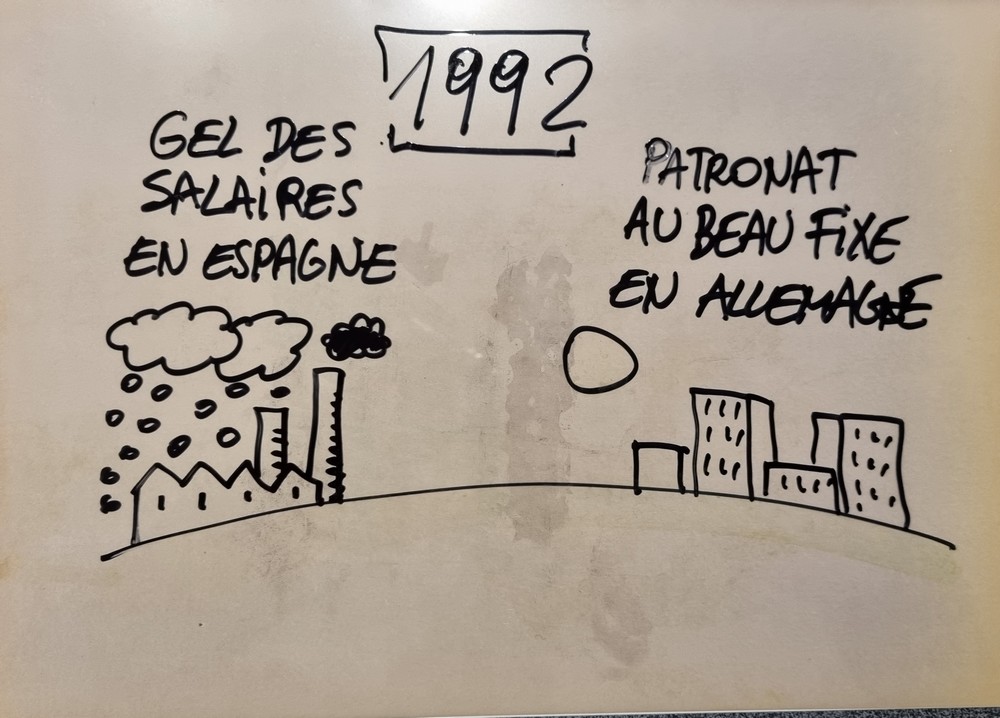 1992
GEL DES
SALAiRES
EN ESPAGNE
PATRONAT
AU BEAU FiXE
EN ALLEMAGNE